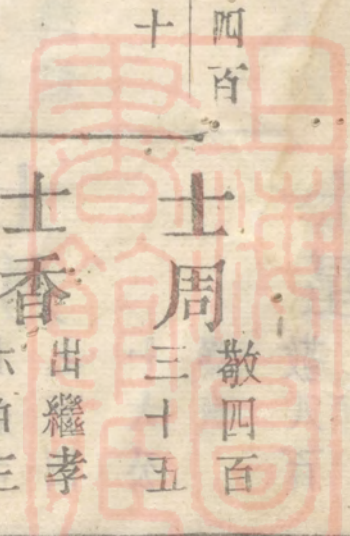 四百
十
士周
敬四百
三十五
士香
出繼孝